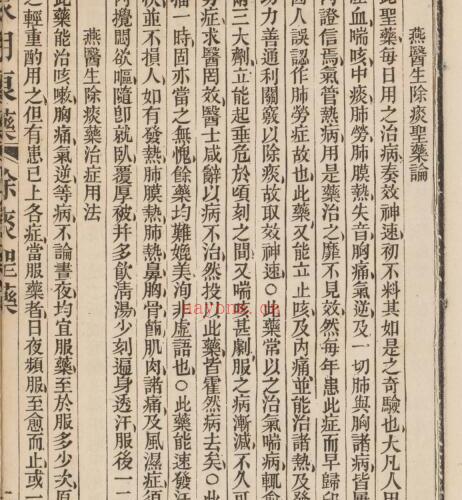 燕醫生除痰聖藥論
此聖藥每日用之治病奏效神速初不料其如是之奇驗也大凡人用
血喘咳中痰肺勞肺膜熱失音胸痛氣逆及一切肺與胸諸病皆
證信焉氣管熱病用是藥治之靡不見效然每年患此症而早歸
人誤認作肺勞症故也此藥又能立止咳及內痛並能治諸熱及發
功力善通利關竅以除痰故取效神速〇此藥常以之治氣喘病輒愈
兩三大劑立能起垂危於頃刻之間又喘咳甚劇服之病漸減不久可
勞症求醫罔效醫士咸辭以病不治然投以此藥皆霍然病去矣〇此
一時固亦當之無愧餘藥均難媲美洵非虛語也〇此藥能速發汗
狀並不損人如有發熱肺膜熱肺熱鼻胸骨節肌肉諸痛及風濕症須
內攪悶欲嘔隨卽就臥覆厚被并多飲清湯少刻遍身透汗服後一二
燕醫生除痰藥治症用法
此藥能治咳嗽胸痛氣逆等病不論晝夜均宜服藥至於服多少次
之輕重酌用之但有患已上各症當服藥者日夜頻服至愈而止或一
家用良藥 除痰聖藥
hayong.cc